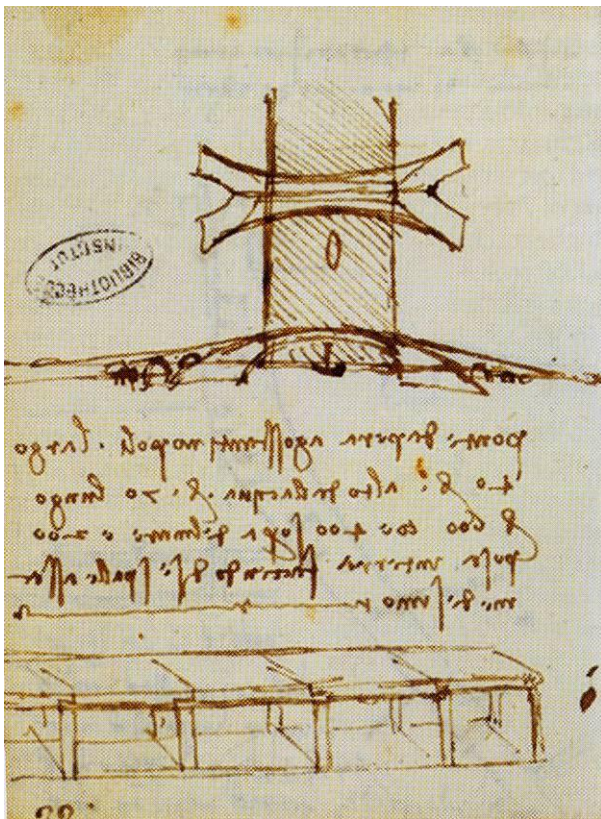 INSTITUT
ponte da pera a gosstantinopoli . largo
40 br alto dall acqua br 70 lungo
br 600 cioe 400 sopra del mare e 200
posa in terra faciendo di se spalle a sse
medesimo